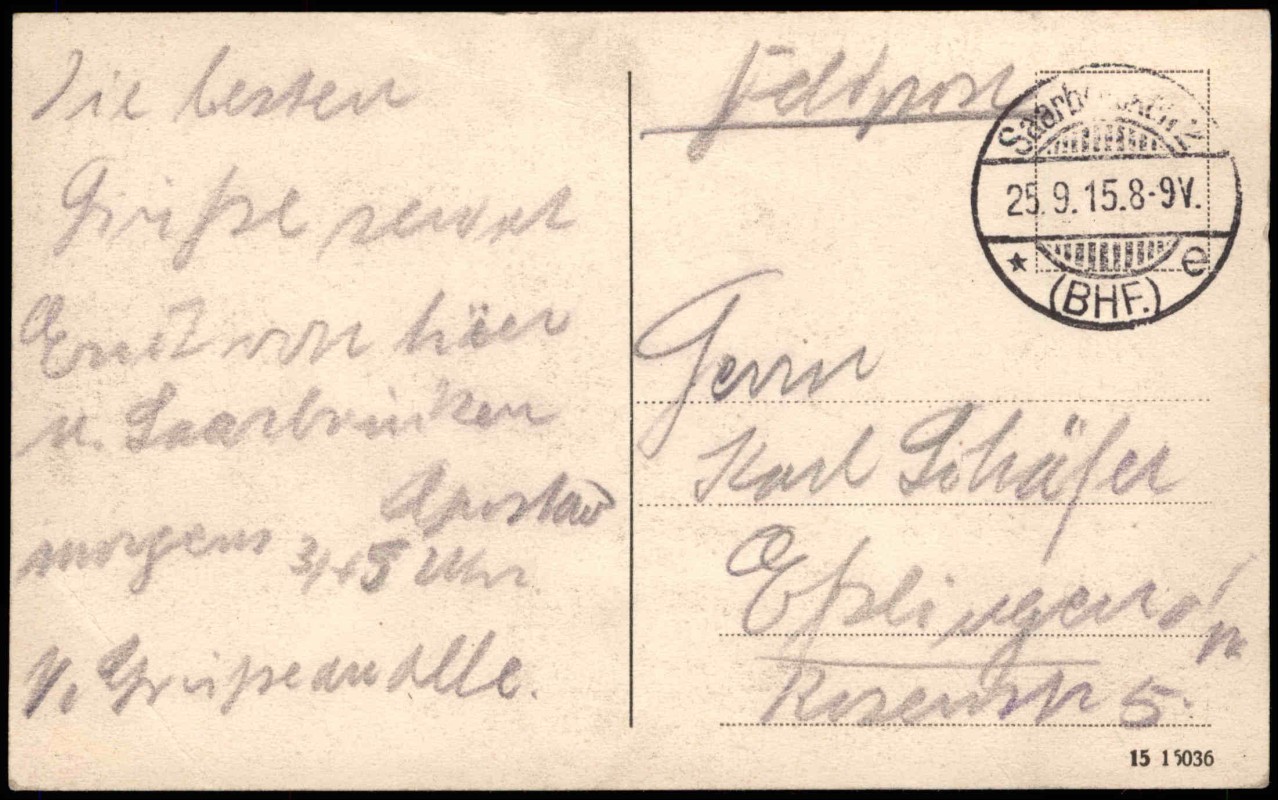 Die besten
Grüße sendet
Ernst von hier
u. Saarbrücken
morgens 3/45 Uhr
V. Grüße an alle.
Feldpost
Saarbrücken 2
25.9.15.8-9V.
★ e
(BHF.)
Herrn
Karl Schäfer
Eßlingen a/N
Rosenstr 5.
15 15036